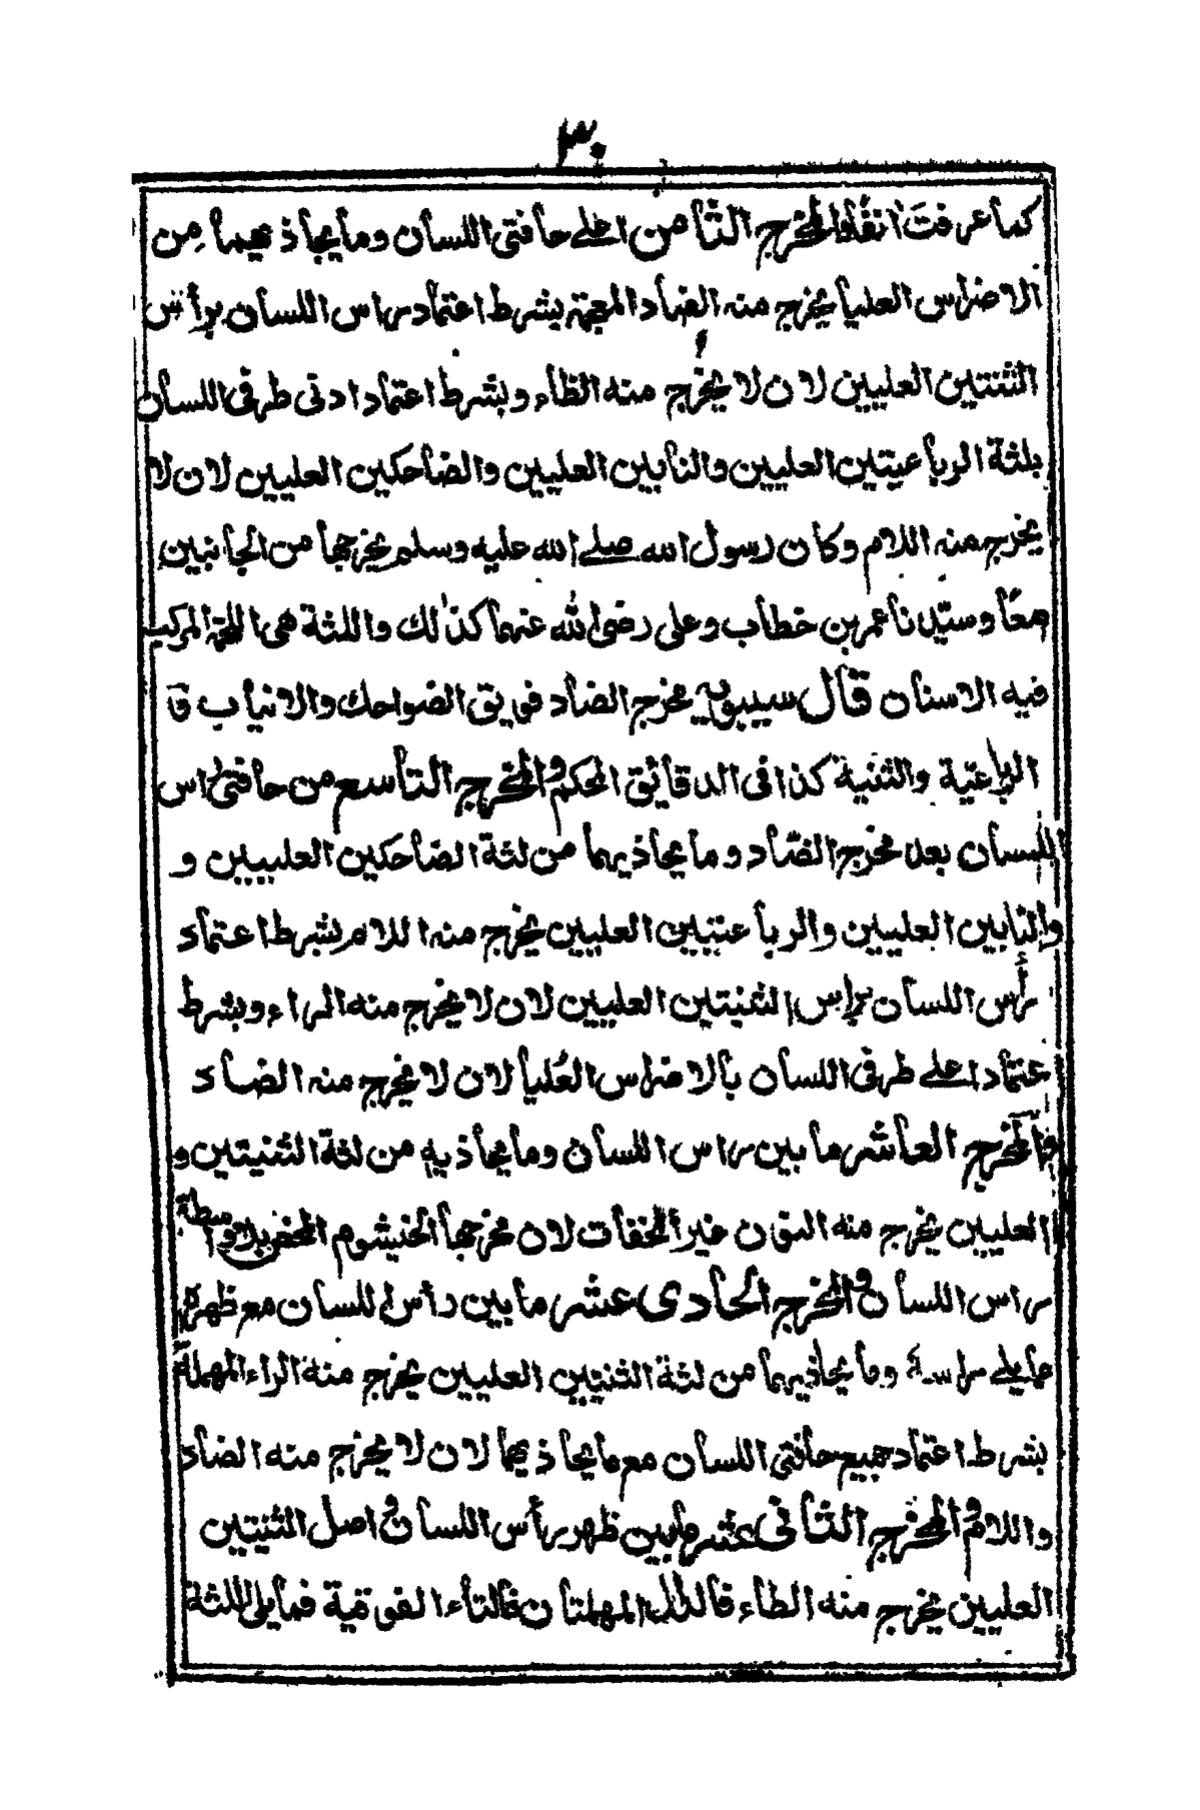 ٣٠
كما عرفت انفا والمخرج الثامن اعلى حافتى اللسان وما يحاذيهما من
الاضراس العليا يخرج منه الضاد المعجمة بشرط اعتماد راس اللسان براس
الثنتين العليين لان لا يخرج منه الظاء وبشرط اعتماد ادنى طرفى اللسان
بلثة الرباعيتين العليين والنابين العليين والضاحكين العليين لان لا
يخرج منه اللام وكان رسول الله صلى الله عليه وسلم يخرجها من الجانبين
معًا وسيّدنا عمر بن خطاب وعلى رضى الله عنهما كذلك واللثة هى اللحمة المركب
فيه الاسنان قال سيبويه مخرج الضاد فويق الضواحك والانياب ق
الرباعيّة والثنية كذا فى الدقائق المحكم والمخرج التاسع من حافتى راس
اللسان بعد مخرج الضّاد وما يحاذيهما من لثة الضاحكين العليين و
والنابين العليين والرباعيتين العليين يخرج منه اللام بشرط اعتماد
رأس اللسان براس الثنيتين العليين لان لا يخرج منه الراء وبشرط
عتماد اعلى طرفى اللسان بالاضراس العُليا لان لا يخرج منه الضاد
فالمخرج العاشر ما بين راس اللسان وما يحاذيه من لثة الثنيتين و
العليين يخرج منه النون غير المخفات لان مخرجها الخيشوم المخفر بلا واسطة
راس اللسان والمخرج الحادى عشر ما بين رأس اللسان مع ظهره
مايلى راسه وما يحاذيهما من لثة الثنتين العليين يخرج منه الراء المهملة
بشرط اعتماد جميع حافتى اللسان مع ما يحاذيهما لان لا يخرج منه الضاد
واللام والمخرج الثانى عشر مابين ظهر رأس اللسان واصل الثنيتين
العليين يخرج منه الطاء فالدال المهملتان فالتاء الفوقية فمايلى اللثة